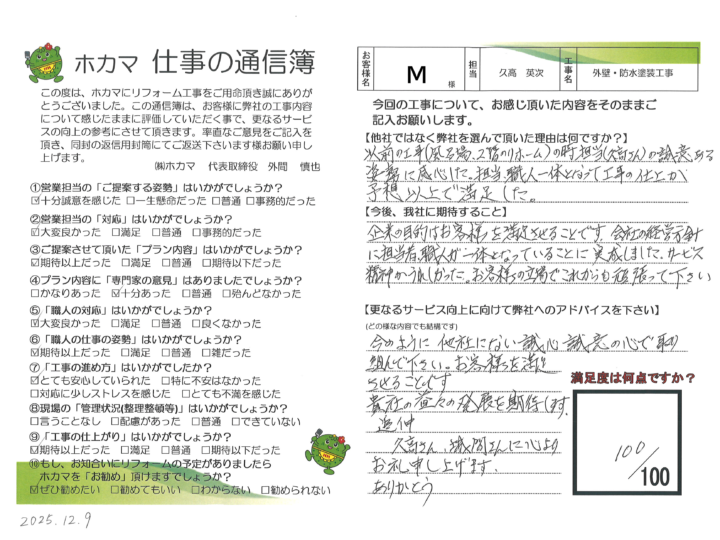 ホカマ 仕事の通信簿
この度は、ホカマにリフォーム工事をご用命頂き誠にありが
とうございました。この通信簿は、お客様に弊社の工事内容
について感じたままに評価していただく事で、更なるサービ
スの向上の参考にさせて頂きます。率直なご意見をご記入を
頂き、同封の返信用封筒にてご返送下さいます様お願い申し
上げます。
㈱ホカマ 代表取締役 外間 慎也
①営業担当の「ご提案する姿勢」はいかがでしょうか?
☑十分誠意を感じた □一生懸命だった □普通 □事務的だった
②営業担当の「対応」はいかがでしょうか?
☑大変良かった □満足 □普通 □事務的だった
③ご提案させて頂いた「プラン内容」はいかがでしょうか?
☑期待以上だった □満足 □普通 □期待以下だった
④プラン内容に「専門家の意見」はありましたでしょうか?
□かなりあった ☑十分あった □普通 □殆んどなかった
⑤「職人の対応」はいかがでしょうか?
☑大変良かった □満足 □普通 □良くなかった
⑥「職人の仕事の姿勢」はいかがでしょうか?
☑期待以上だった □満足 □普通 □雑だった
⑦「工事の進め方」はいかがでしたか?
☑とても安心していられた □特に不安はなかった
□対応に少しストレスを感じた □とても不満を感じた
⑧現場の「管理状況(整理整頓等)」はいかがでしょうか?
□言うことなし □配慮があった □普通 □できていない
⑨「工事の仕上がり」はいかがでしょうか?
☑期待以上だった □満足 □普通 □期待以下だった
⑩もし、お知合いにリフォームの予定がありましたら
ホカマを「お勧め」頂けますでしょうか?
☑ぜひ勧めたい □勧めてもいい □わからない □勧められない
2025.12.9
お客様名 M 様 担当 久高 英次 工事名 外壁・防水塗装工事
今回の工事について、お感じ頂いた内容をそのままご
記入お願いします。
【他社ではなく弊社を選んで頂いた理由は何ですか?】
以前の工事(風呂場、2階のリホーム)の時、担当(久高さん)の誠意ある
姿勢に感心した。担当、職人一体となって工事の仕上が
予想以上で満足した。
【今後、我社に期待すること】
企業の目的はお客様を満足させることです。会社の経営方針
に担当者、職人が一体となっていることに実感しました。サービス
精神がうれしかった。お客様の立場でこれからも頑張って下さい
【更なるサービス向上に向けて弊社へのアドバイスを下さい】
(どの様な内容でも結構です)
今のように他社にない誠心誠意の心で取り
組んで下さい。お客様を満足
させることです
貴社の益々の発展を期待します。
追伸
久高さん、城間さんに心より
お礼申し上げます。
ありがとう
満足度は何点ですか?
100/100